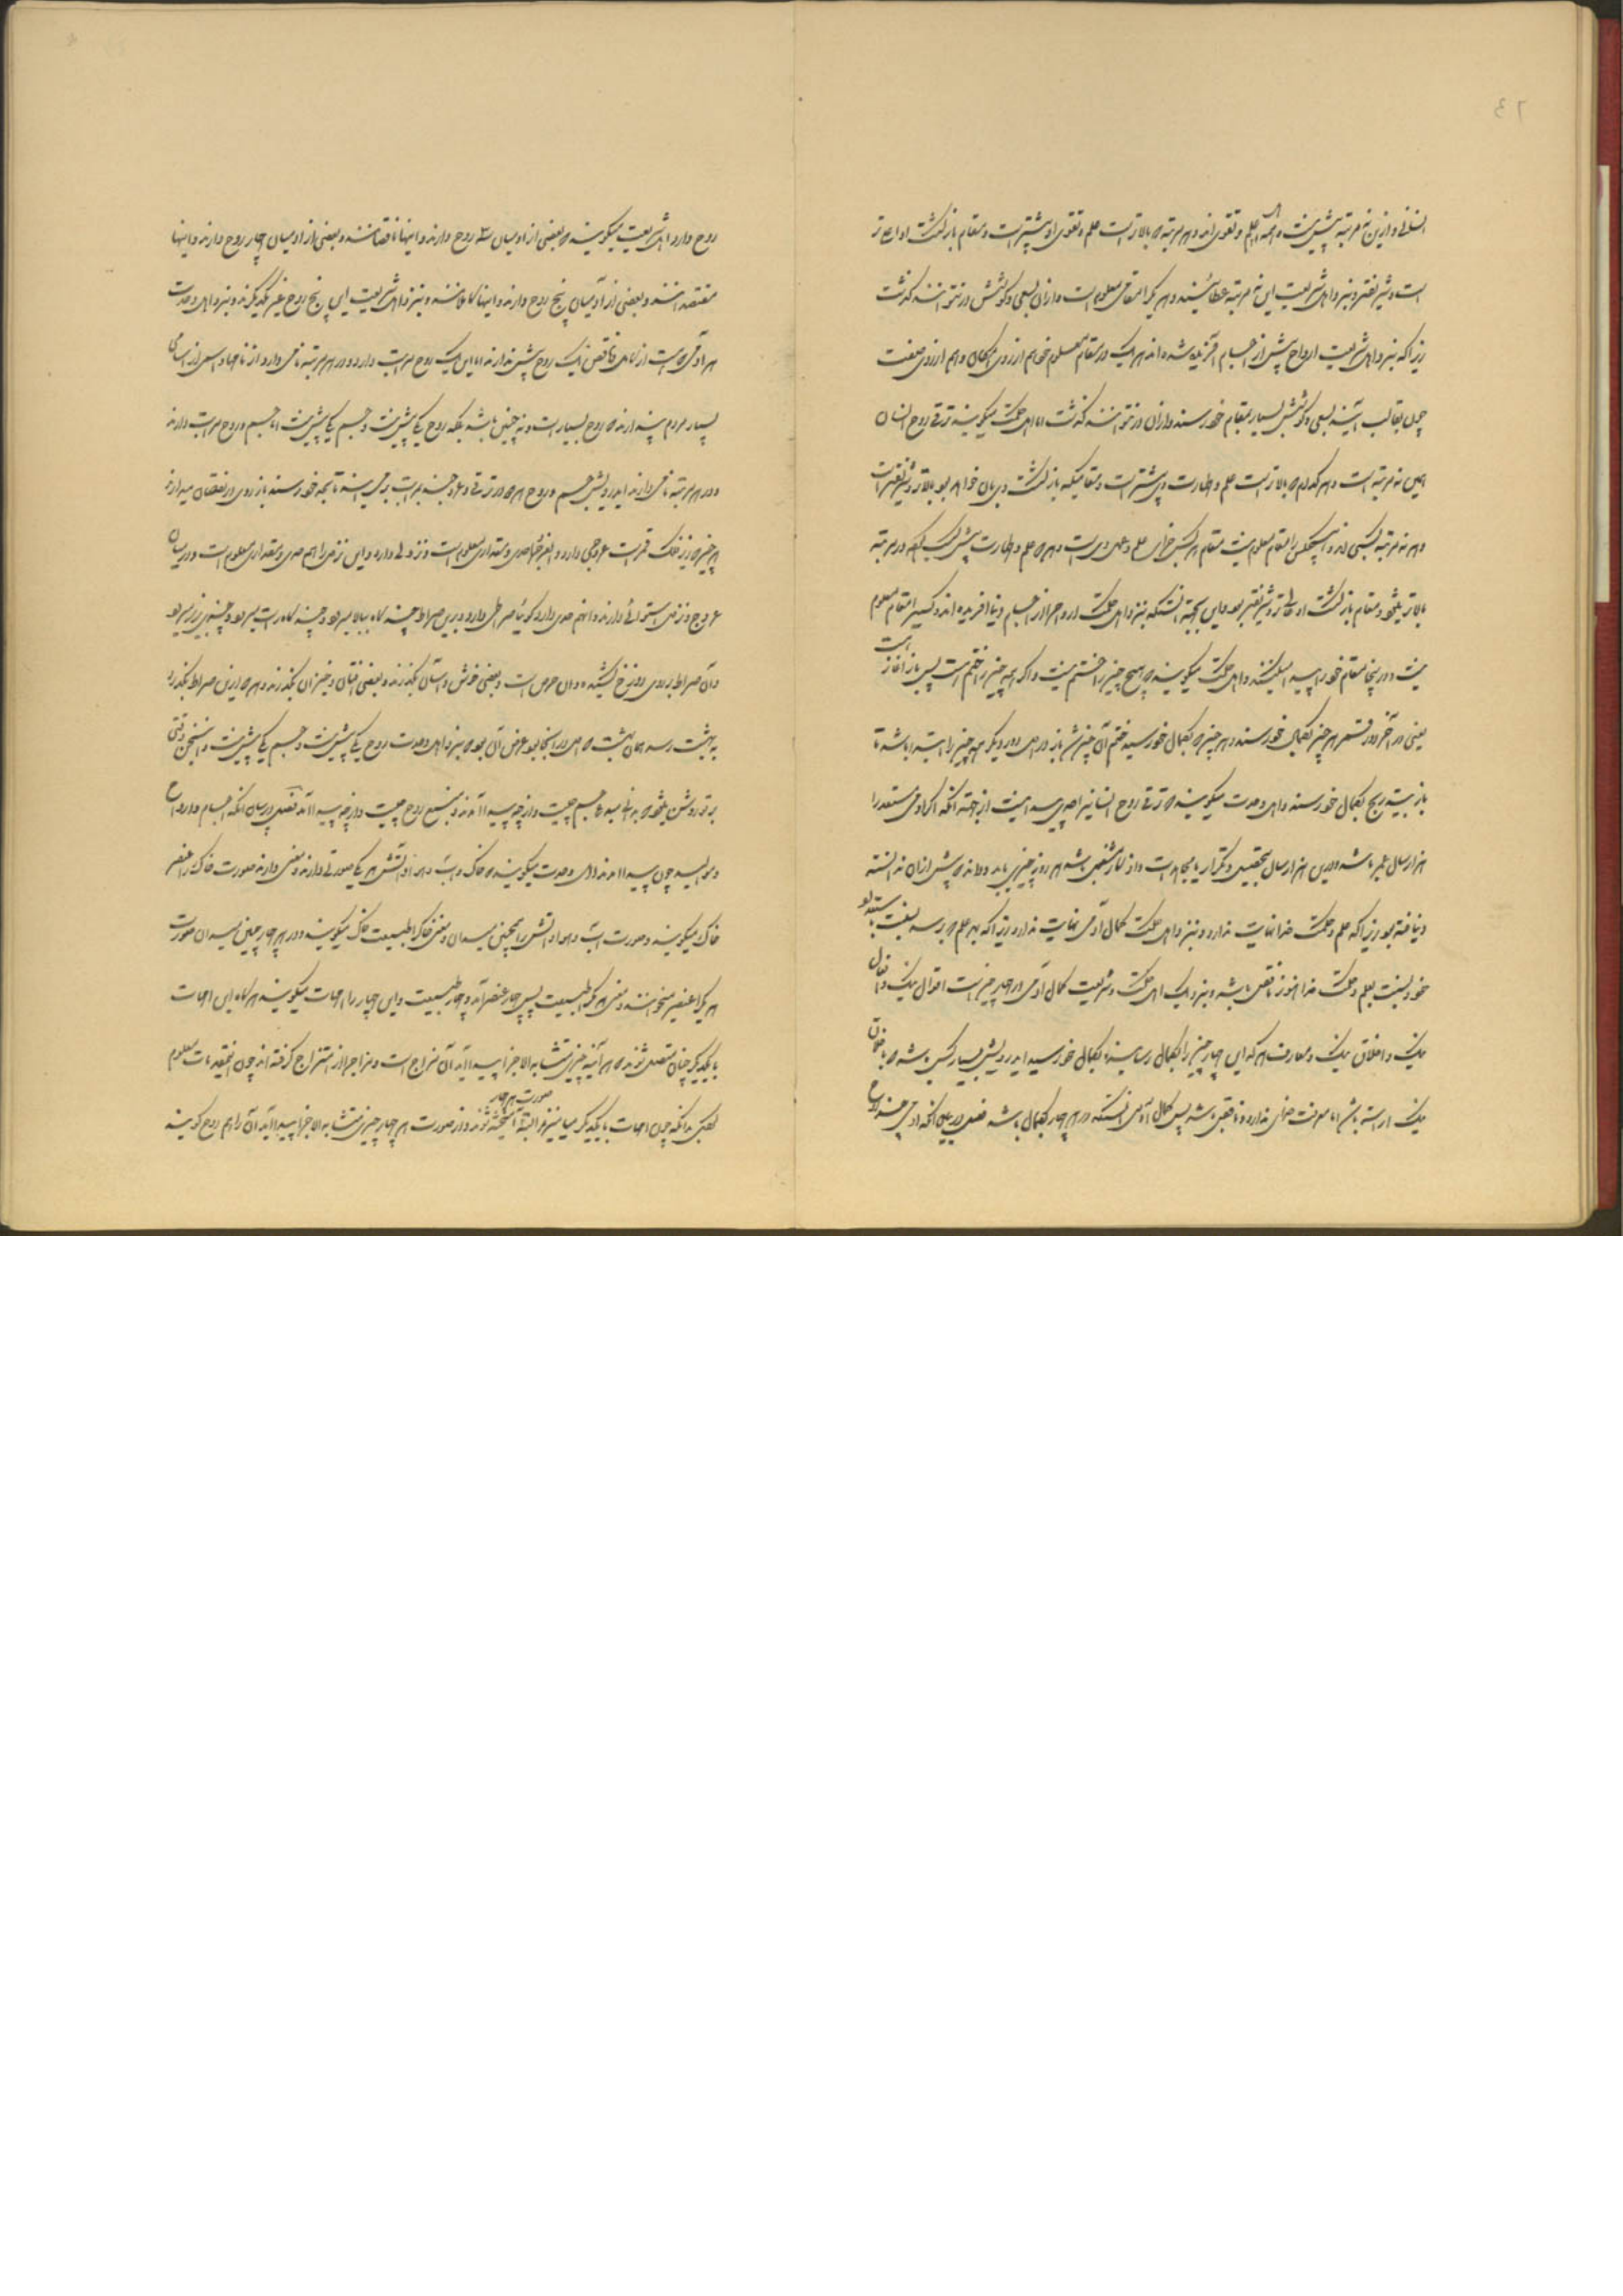 انسانی و ازین نه مرتبه بیش نیست و همه اهل علم و تقوی اند و هر مرتبه که بالاتر است علم و تقوی او بیشتر است و مقام بازگشت او اعلی تر
است و شریفتر و نزد اهل شریعت این نه مرتبه عطائیند و هر یکی را مقامی معلوم است و از آن بسعی و کوشش در نتوانند گذشت
زیرا که نزد اهل شریعت ارواح پیش از اجسام آفریده شده اند هر یک در مقام معلوم خواهم از روی مکان و خواهم از روی صفت
چون بقالب آیند بسعی و کوشش بسیار بمقام خود رسند و از آن در نتوانند گذشت اما اهل حکمت میگویند ترقی روح انسان
همین نه مرتبه است و هر کدام که بالاتر است علم و طهارت وی بیشتر است و مقامیکه بازگشت وی بآن خواهد بود بالاتر و شریفتر است
و هر نه مرتبه کسبی اند و هیچکس را مقام معلوم نیست مقام هر کس جزای علم و عمل وی است و هر که علم و طهارت بیش کسب کند در مرتبه
بالاتر میشود و مقام بازگشت او عالی تر و شریفتر بود و این بجهة آنستکه نزد اهل حکمت ارواح را از اجسام دنیا آفریده اند و کسی را مقام معلوم
نیست و در اینجا مقام خود را پیدا میکنند و اهل حکمت میگویند که هیچ چیز را ختم نیست و اگر همه چیز را ختم است پس باز آغاز هست
یعنی در آخر دور قمر هر چیز بکمال خود رسند و هر چیز که بکمال خود رسید ختم آن چیز شد باز در اول دور دیگر همه چیز را ابتدا باشد تا
باز بتدریج بکمال خود رسند و اهل وحدت میگویند که ترقی روح انسانی را حدی پیدا نیست از جهة آنکه اگر آدمی مستعد را
هزار سال عمر باشد و درین هزار سال بتحصیل و تکرار یا بمجاهدات و اذکار مشغول باشد هر روز چیزی یابد و داند که پیش از آن ندانسته
و نیافته بود زیرا که علم و حکمت خدا نهایت ندارد و نزد اهل حکمت کمال آدمی نهایت ندارد زیرا که بهر علم که برسد نسبت باستعداد
خود و نسبت بعلم و حکمت خدا هنوز ناقص باشد و نزدیک اهل حکمت و شریعت کمال آدمی در چهار چیز است اقوال نیک و افعال
نیک و اخلاق نیک و معارف هر که این چهار چیز را بکمال رسانید بکمال خود رسید ای درویش بسیار کس باشد که باخلاق
نیک آراسته باشد اما معرفت خدای ندارد و ناقص باشد پس کمال آدمی آنستکه در هر چهار بکمال باشد فصل در بیان آنکه آدمی چند روح
روح دارد اهل شریعت میگویند که بعضی از آدمیان سه روح دارند و اینها ناقصانند و بعضی از آدمیان چهار روح دارند و اینها
معتقدانند و بعضی از آدمیان پنج روح دارند و اینها کاملانند و نزد اهل شریعت این پنج روح غیر یکدیگرند و نزد اهل وحدت
هر آدمی که هست از کامل و ناقص یک روح بیش ندارند اما این یک روح مراتب دارد و در هر مرتبه نامی دارد از نامها و اسمی از اسامی
بسیار مردم پندارند که روح بسیار است و نه چنین باشد بلکه روح یکی بیش نیست و جسم یکی بیش نیست اما جسم و روح مراتب دارند
و در هر مرتبه نامی دارند ای درویش جسم و روح هر دو در ترقی و عروجند بمراتب برمیآیند تا بحد خود رسند باز روی در نقصان میدارند
هر چیز که زیر فلک قمر است عروجی دارد و عروج را حدی و مقداری معلوم است و نزولی دارد و این نزول را هم حدی و مقداری معلوم است و در میان
عروج و نزول استوائی دارند و آنهم حدی دارد گوئیا صراطی دارد و برین صراط چند گاه ببالا میرود و چند گاه راست میرود و چندی بزیر میرود
و آن صراط بر روی دوزخ کشیده و آن حرص است و بعضی خوش و آسان بگذرند و بعضی افتان و خیزان بگذرند و هر که ازین صراط بگذرد
به بهشت رسد همان بهشت که اول در آنجا بود غرض آن بود که نزد اهل وحدت روح یکی بیش نیست و جسم یکی بیش نیست و این سخن وقتی
بر تو روشن شود که بدانی مبدء جسم چیست و از چه پیدا آمدند و منبع روح چیست و از چه پیدا آمد فصل در بیان آنکه اجسام و ارواح
و موالید چون پیدا آمدند اهل وحدت میگویند که خاک و آب و هوا و آتش هر یکی صورتی دارند و معنی دارند صورت خاک را عنصر
خاک میگویند و صورت آب و هوا و آتش را همچنین میدان و معنی خاک را طبیعت خاک میگویند و در هر چهار چنین میدان صورت
هر یکرا عنصر میخوانند و معنی هر یکرا طبیعت پس چهار عنصر آمد و چهار طبیعت و این چهار را امهات میگویند هر گاه این امهات
با یکدیگر چنان متصل شوند که هر آینه چیزی متشابه الاجزا پیدا آید آن مزاج است و مزاج را از امتزاج گرفته اند چون اینمقدمات معلوم
گشتی بدانکه چون امهات با یکدیگر بیامیزند البته صورت هر چهار آمیخته شوند و از صورت هر چهار چیزی متشابه الاجزا پیدا آید آن را هم روح گویند